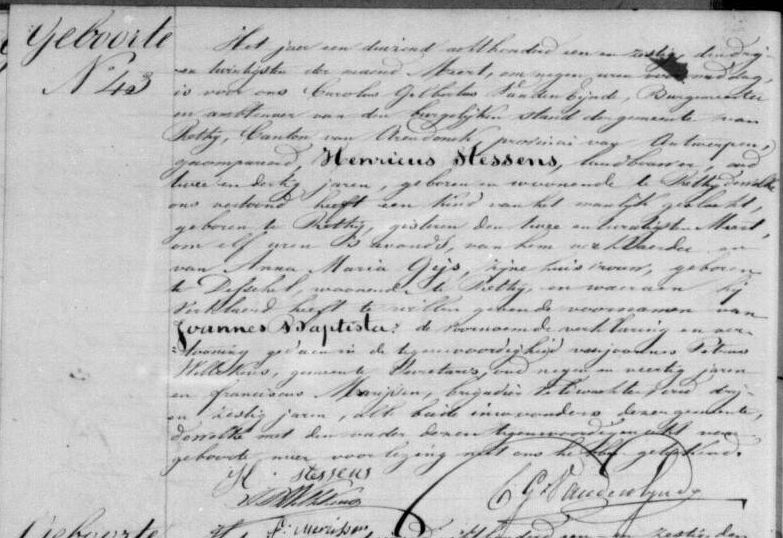 Geboorte
N° 43
Het jaar een duizend achthonderd een en zestig, den drij
en twintigsten der maand Meert, om negen uren voormiddag
is voor ons Carolus Gilbertus Van den Eijnde, Burgemeester
en ambtenaer van den burgelijken stand der gemeente van
Rethy, Canton van Arendonck, provincie van Antwerpen,
gecompareerd, Henricus Stessens, landbouwer, oud
twee en dertig jaren, geboren en woonende te Rethy, denwelke
ons vertoond heeft een kind van het manlijk geslacht,
geboren te Rethy, gisteren den twee en twintigsten Meert,
om elf uren 's avonds, van hem verklaerder en
van Anna Maria Gijs, zijne huisvrouw, geboren
te Desschel, woonende te Rethy, en waeraen hij
verklaerd heeft te willen geven de voornamen van
Joannes Baptista: de voornoemde verklaring en ver-
tooning gedaen in de tegenwoordigheid van Joannes
Willekens, gemeente Secretaris, oud negen en veertig jaren
en franciscus brigadier oud drij
en zestig jaren, alle beide inwoonders dezer gemeente,
denwelke met den vader dezen tegenwoordigen akt van
geboorte naer voorlezing met ons hebben geteekend.
H. Stessens
C. G. Vanden Eynde
Geboorte